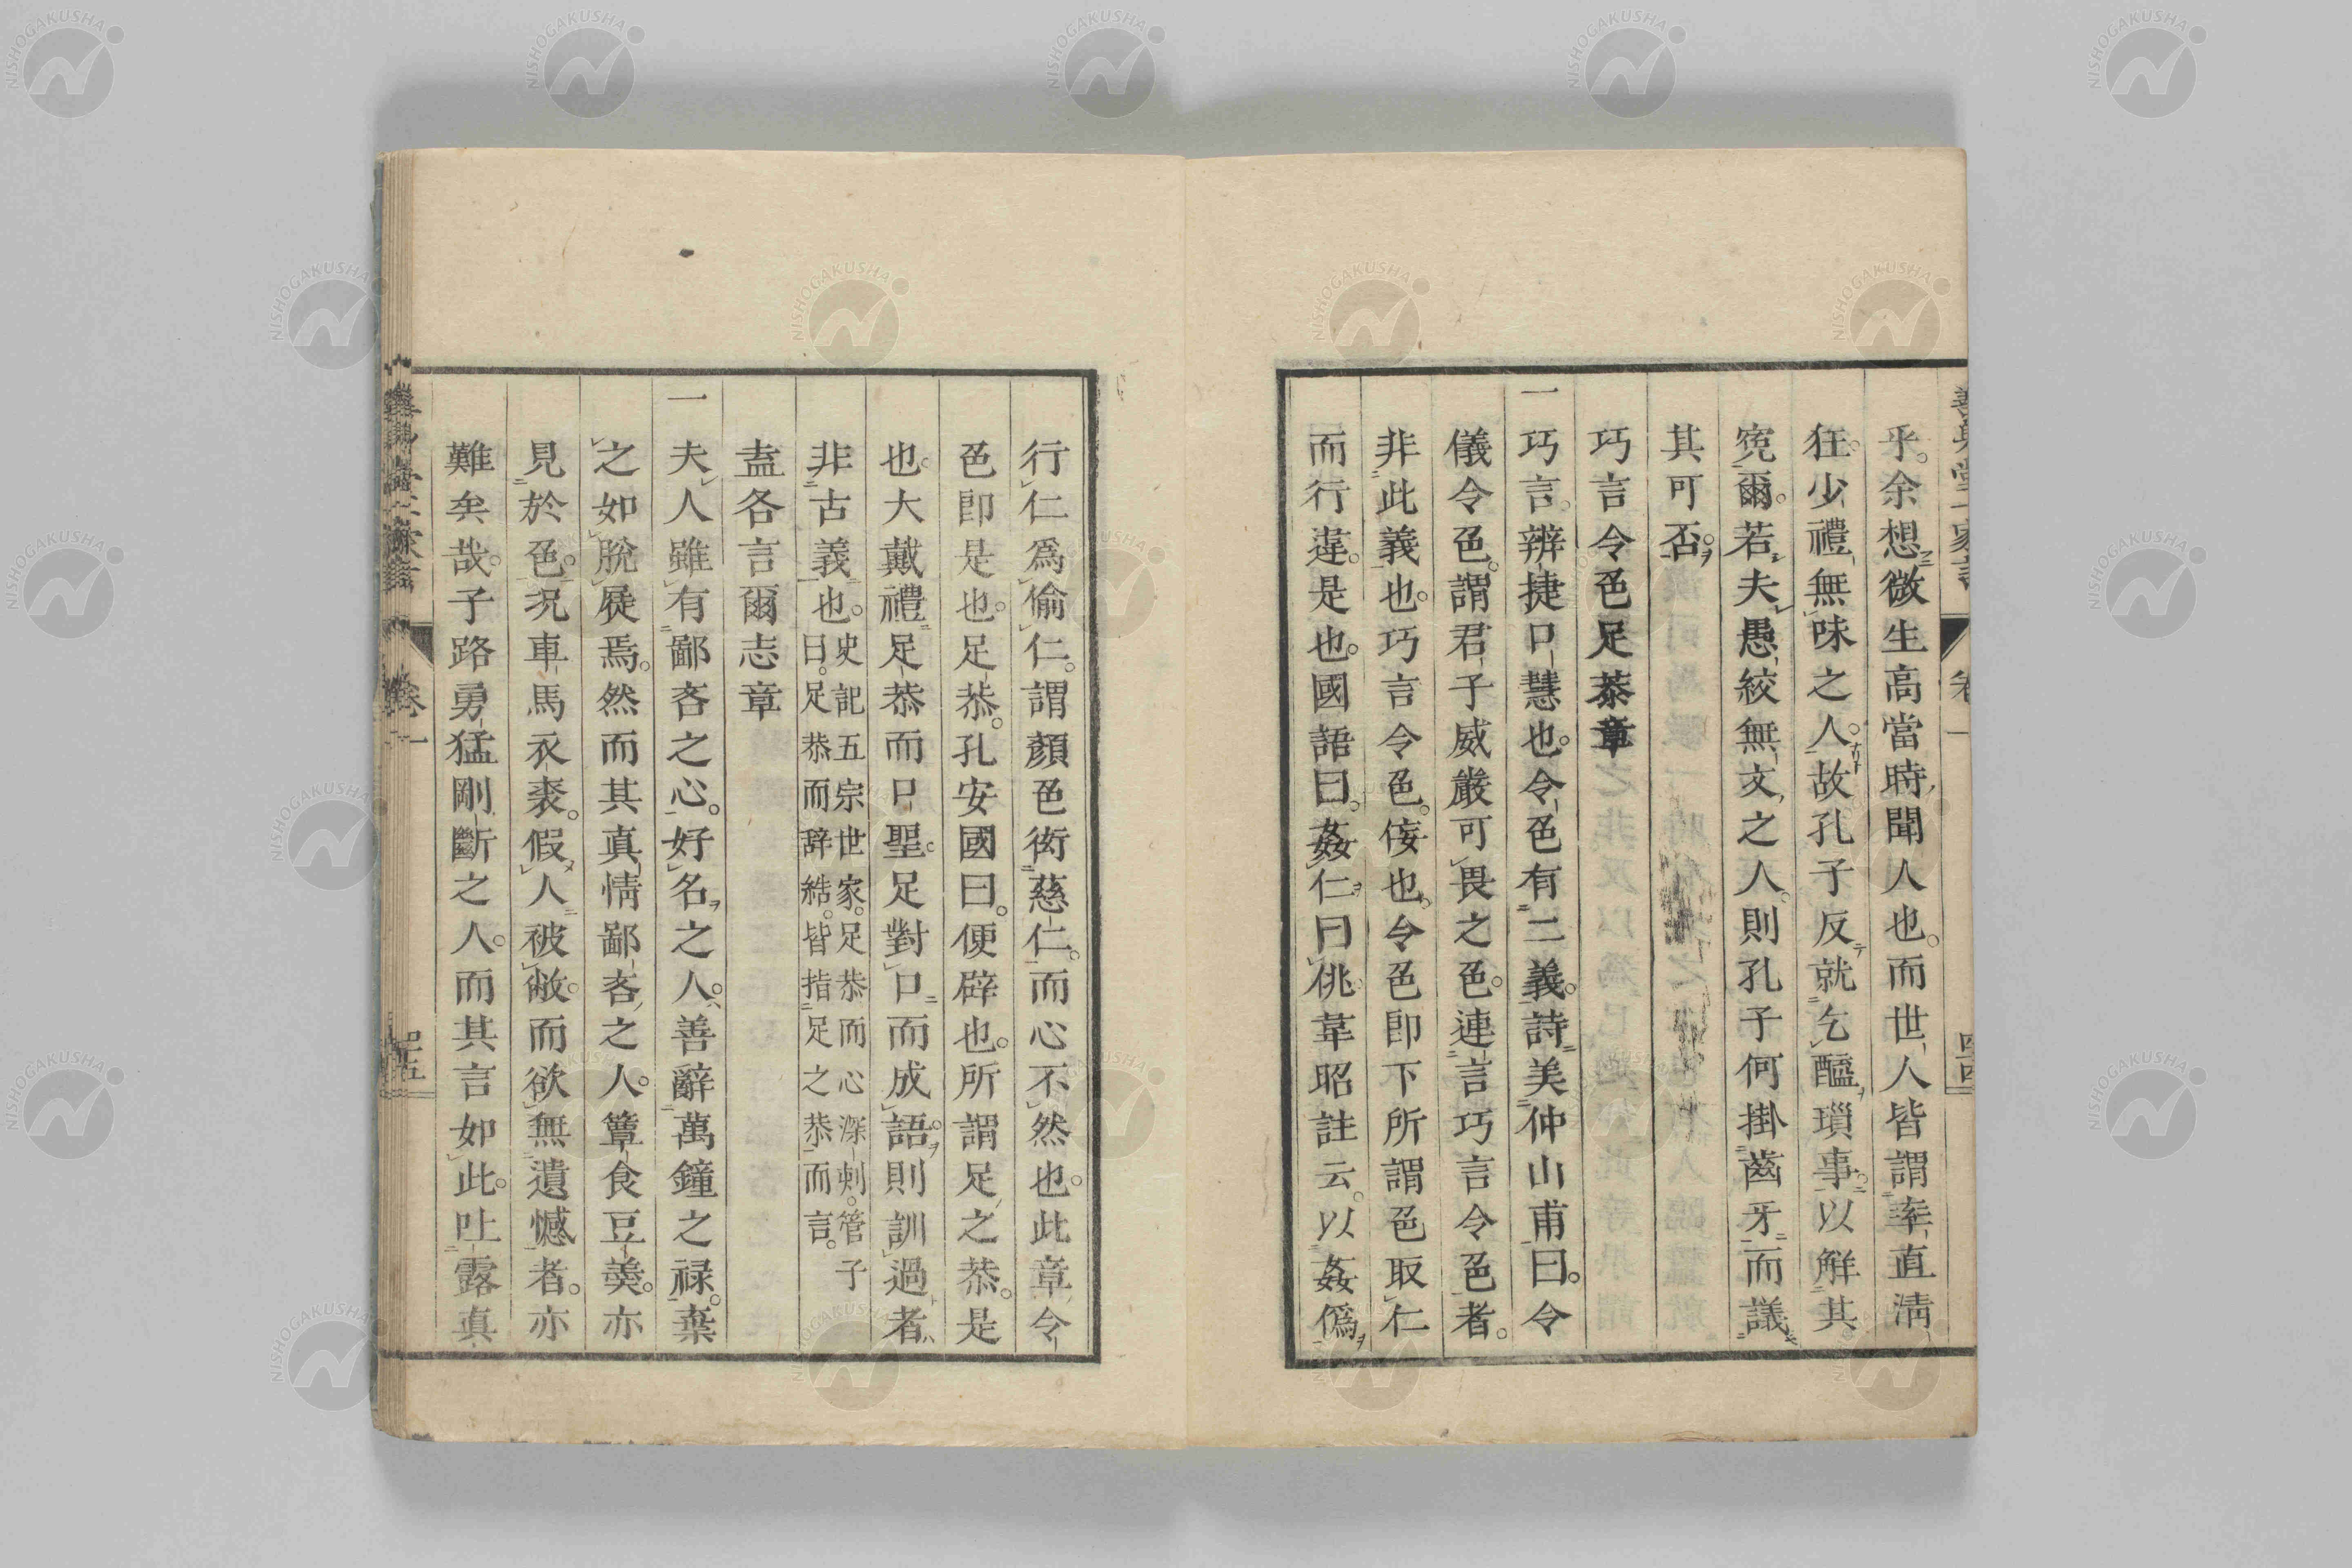 乎。余想微生高當時聞人也。而世人皆謂率直淸
狂。少禮無味之人。故孔子反就乞醯瑣事。以解其
寃爾。若夫愚絞無文之人。則孔子何掛齒牙而議
其可否。
巧言令色足恭章
一巧言。辨捷口慧也。令色有二義。詩美仲山甫曰。令
儀令色。謂君子威嚴可畏之色。連言巧言令色者。
非此義也。巧言令色。侫也。令色卽下所謂色取仁
而行違。是也。國語曰。姦仁曰佻。韋昭註云。以姦僞
行仁爲偷仁。謂顏色衒慈仁。而心不然也。此章令
色卽是也。足恭。孔安國曰。便辟也。所謂足之恭。是
也。大戴禮足恭而口聖。足對口而成語。則訓過者
非古義也。史記五宗世家。足恭而心深刺。管子
曰。足恭而辭結。皆指足之恭而言。
盍各言爾志章
一夫人雖有鄙吝之心。好名之人。善辭萬鐘之祿。棄
之如脫屣焉。然而其眞情鄙吝之人。簞食豆羹。亦
見於色。况車馬衣裘。假人被敝。而欲無遺憾者。亦
難矣哉。子路勇猛剛斷之人。而其言如此。吐露眞
卷一
四十五